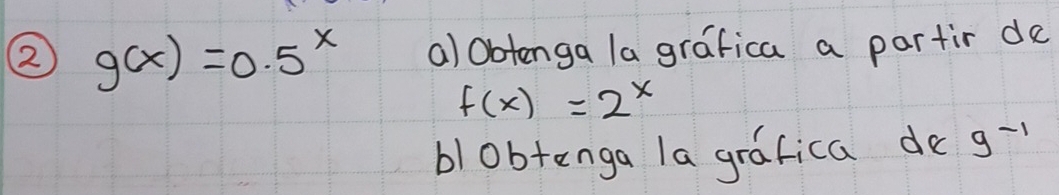 ② g(x) = 0.5^x a) Obtenga la gráfica a partir de
f(x) = 2^x
b) Obtenga la gráfica de g^-1